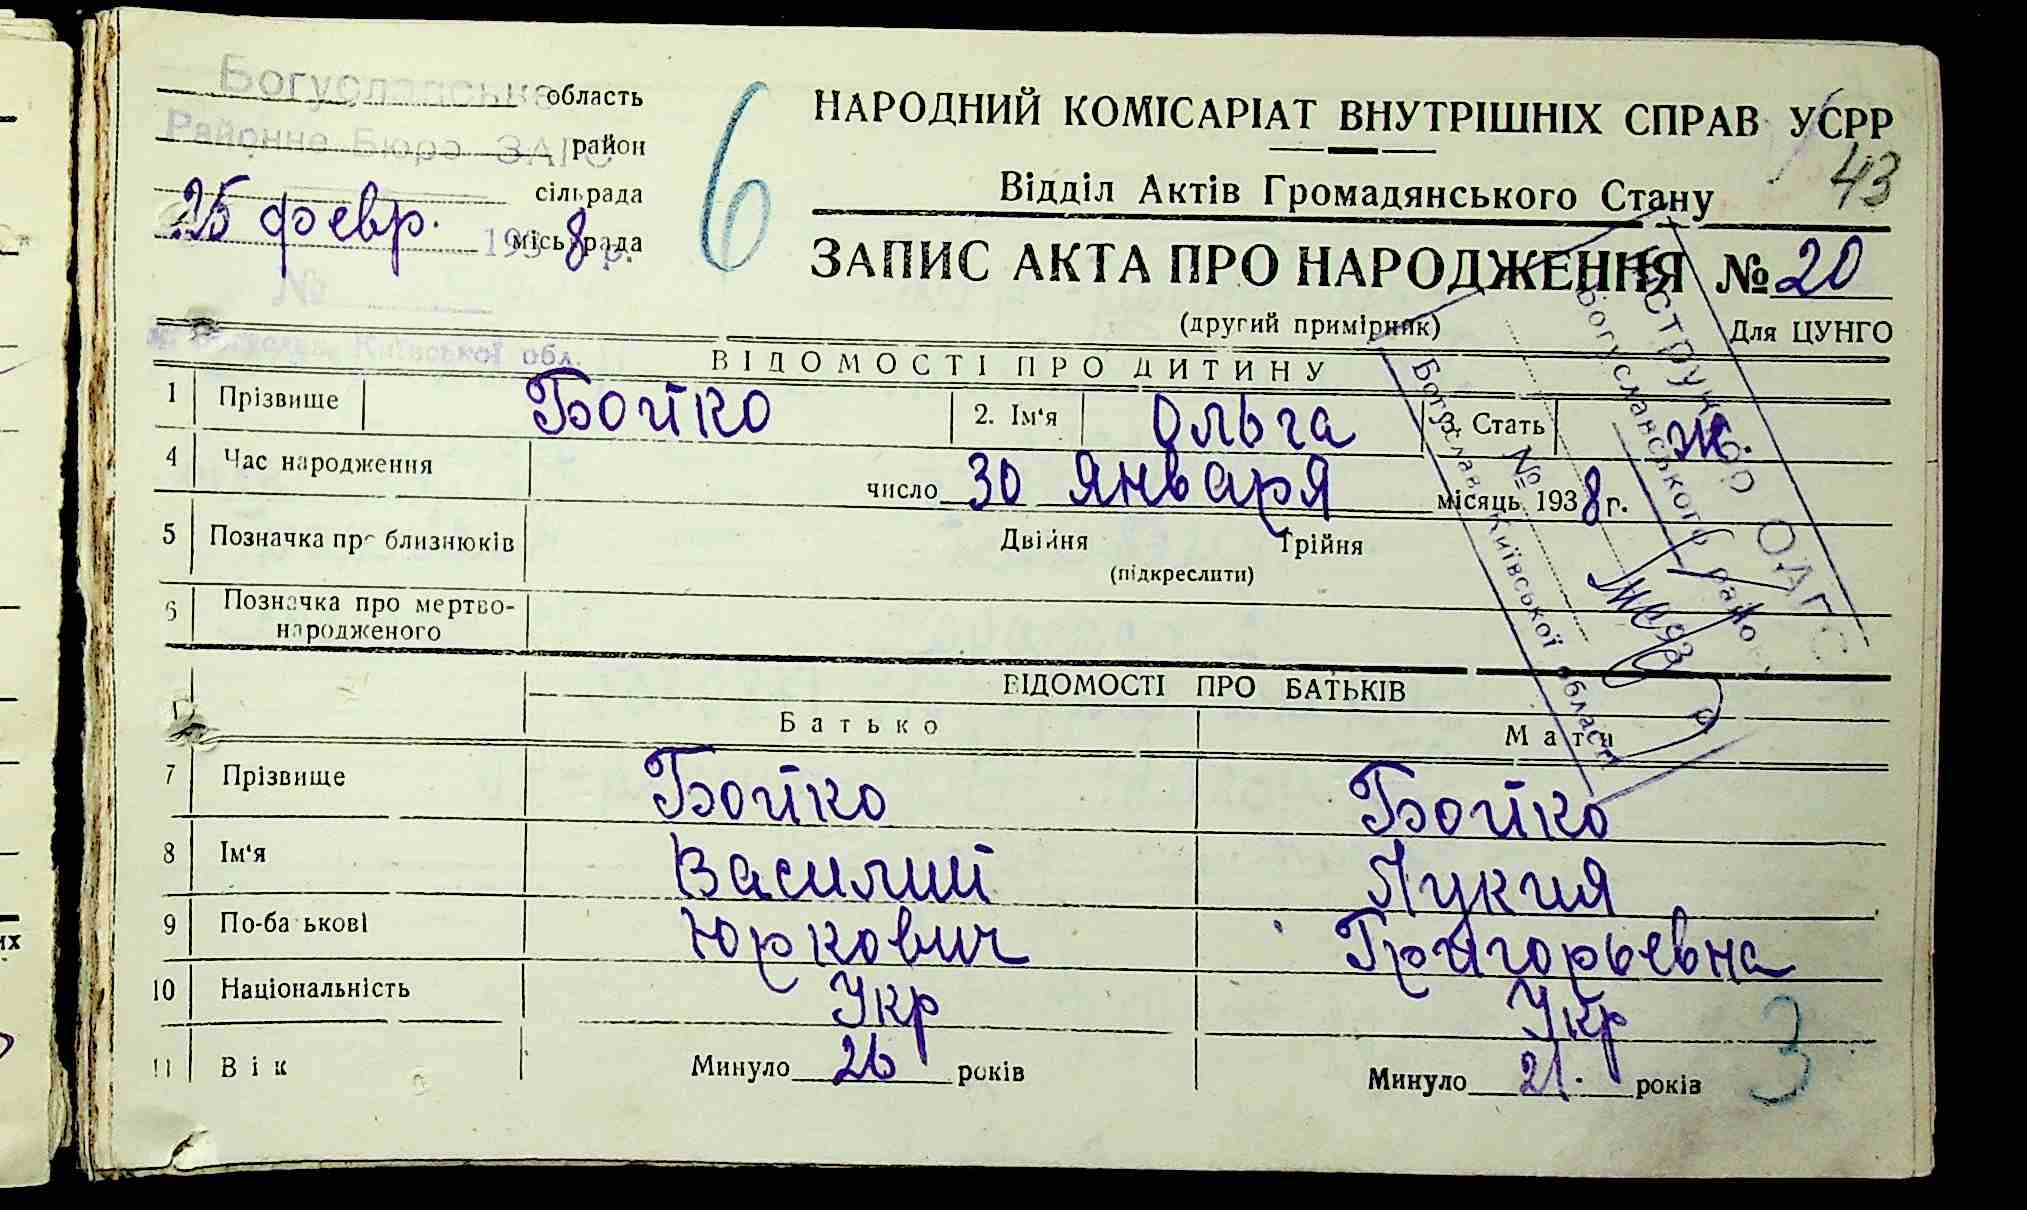 Богуславське область
Районне Бюро ЗАГС район
сільрада
25 февр. 1938 р. міськрада
№
м. Богуслав, Київської обл.
6
НАРОДНИЙ КОМІСАРІАТ ВНУТРІШНІХ СПРАВ УСРР
43
Відділ Актів Громадянського Стану
ЗАПИС АКТА ПРО НАРОДЖЕННЯ № 20
(другий примірник) Для ЦУНГО
ВІДОМОСТІ ПРО ДИТИНУ
1 Прізвище Бойко 2. Ім'я Ольга 3. Стать Ж.
4 Час народження число 30 января місяць 1938 г.
5 Позначка про близнюків Двійня Трійня
(підкреслити)
6 Позначка про мертво-
народженого
Інструктор ОАГС
Богуславського району
№
Богуслав, Київської області
ВІДОМОСТІ ПРО БАТЬКІВ
Батько Мати
7 Прізвище Бойко Бойко
8 Ім'я Василий Лукия
9 По-ба ькові Юркович Григорьевна
10 Національність Укр Укр
3
11 Вік Минуло 26 років Минуло 21. років
их